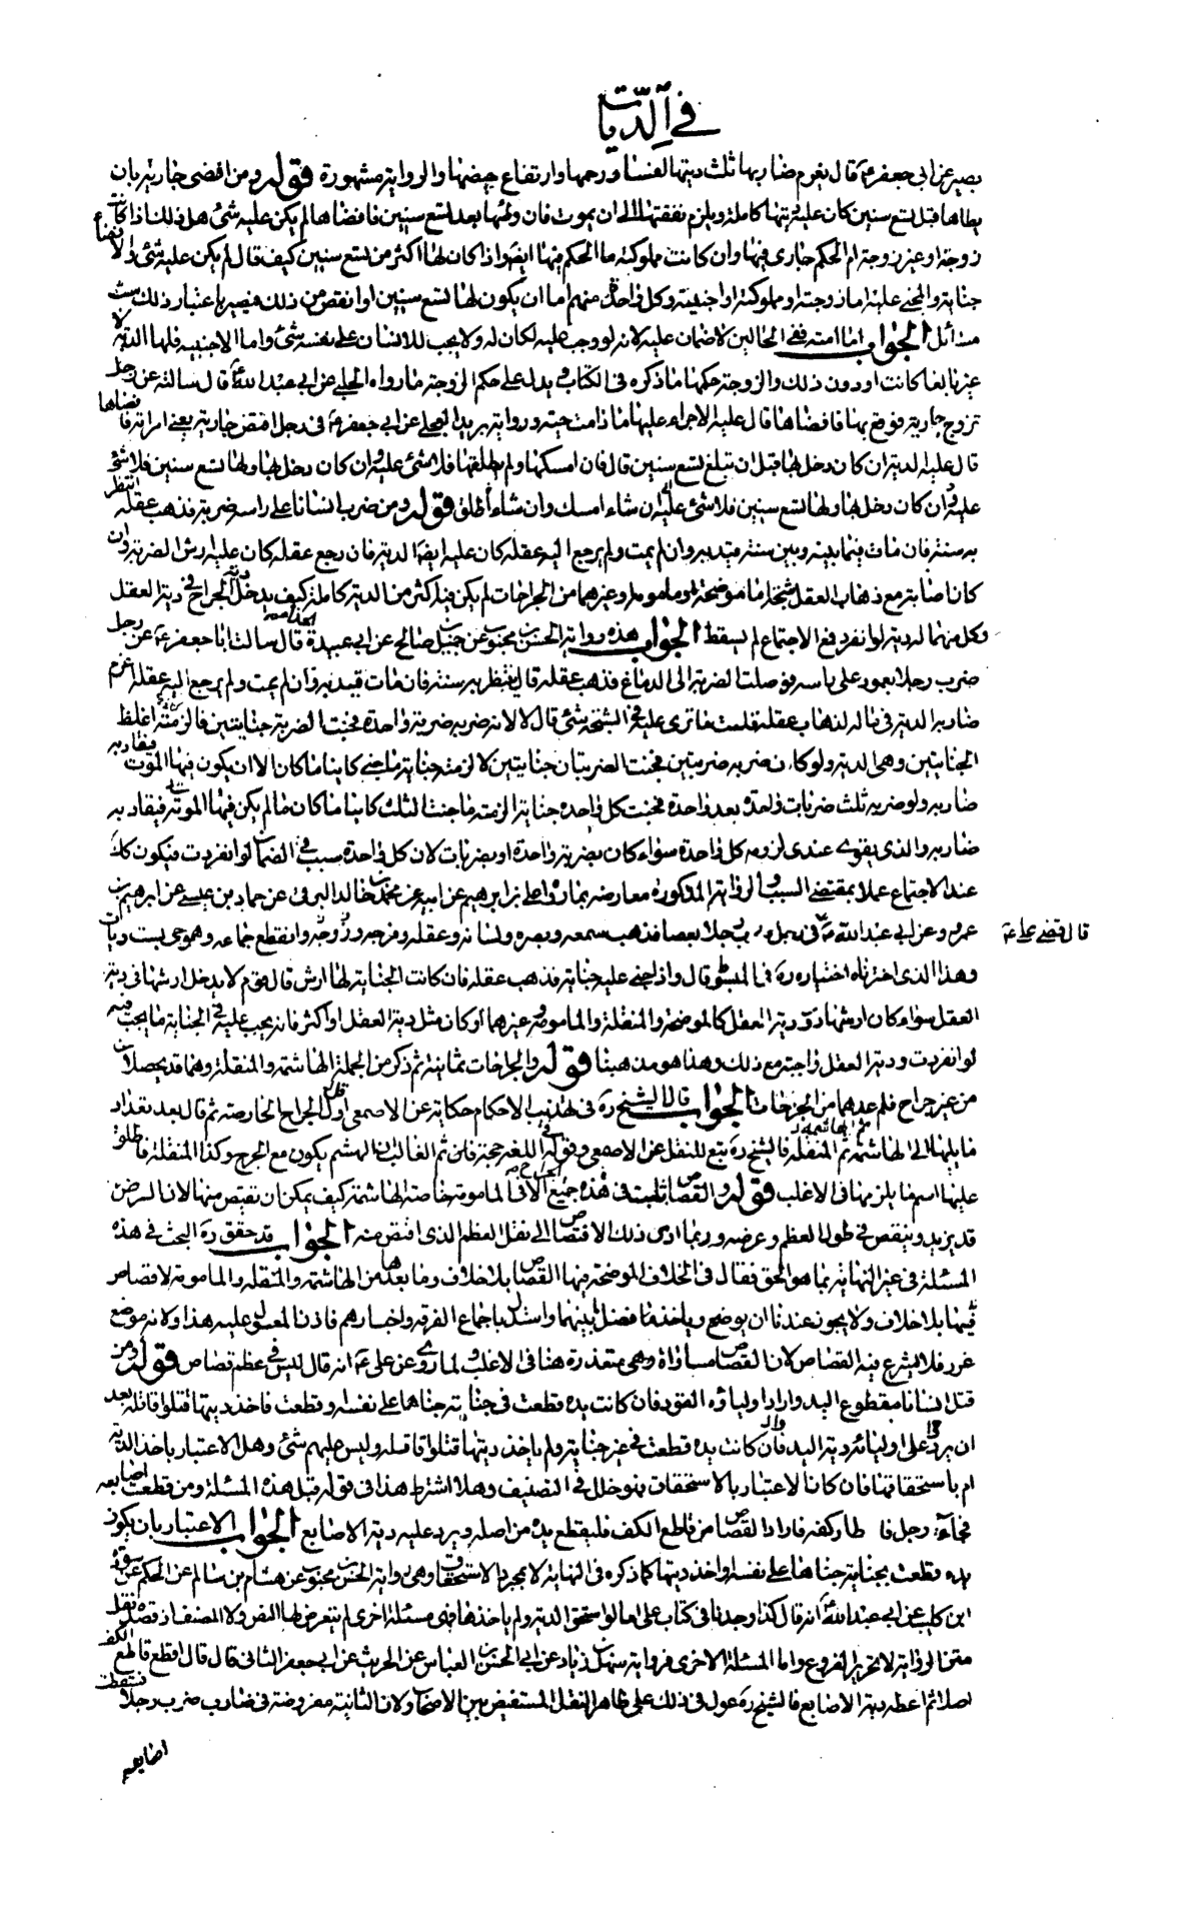 في الديات
بصير عن ابي جعفر ع قال يغرم ضاربها ثلث ديتها لفساد رحمها وارتفاع حيضها والرواية مشهورة قوله ومن افضى جاريته بان
يطاها قبل تسع سنين كان عليه ديتها كاملة ويلزم نفقتها الى ان يموت فان وطئها بعد تسع سنين فافضاها لم يكن عليه شئ هل ذلك اذا كانت
زوجته او غير زوجته ام الحكم جار فيها وان كانت مملوكته ما الحكم فيها ايضا واذا كان لها اكثر من تسع سنين كيف قال لم يكن عليه شئ والافضاء
جناية والمجني عليه اما زوجته او مملوكته او اجنبية وكل واحدة منهم اما ان يكون لها تسع سنين او انقص من ذلك فيصير باعتبار ذلك ست
مسائل الجواب اما امته ففي الحالين لا ضمان عليه لانه لو وجب عليه لكان له ولا يجب للانسان على نفسه شئ واما الاجنبية فلها الدية
عزبا بالغا كانت او دون ذلك والزوجة حكمها ما ذكره في الكتاب ويدل على حكم الزوجة ما رواه الحلبي عن ابي عبد الله ع قال سالته عن رجل
تزوج جارية فوقع بها فافضاها قال عليه الاجراء عليها ما دامت حية ورواية بريد العجلي عن ابي جعفر ع في رجل افتض جارية يعني امراته فافضاها
قال عليه الدية ان كان دخل بها قبل ان تبلغ تسع سنين قال فان امسكها ولم يطلقها فلا شئ عليه وان كان دخل بها ولها تسع سنين فلا شئ
عليه وان كان دخل بها ولها تسع سنين فلا شئ عليه ان شاء امسك وان شاء طلق قوله ومن ضرب انسانا على راسه ضربة فذهب عقله انتظر
به سنة فان مات فيما بينه وبين سنة قيد به وان لم يمت ولم يرجع اليه عقله كان عليه ايضا الدية فان رجع عقله كان عليه ارش الضربة وان
كان اصابه مع ذهاب العقل شجة اما موضحة او مامومة او غيرهما من الجراحات لم يكن فيه اكثر من الدية كاملة كيف يدخل دية الجراح في دية العقل
وكل منهما له دية لو انفرد فمع الاجتماع لم يسقط الجواب هذه رواية الحسن بن محبوب عن جميل بن صالح عن ابي عبيدة الحذاء قال سالت ابا جعفر ع عن رجل
ضرب رجلا بعمود على راسه فوصلت الضربة الى الدماغ فذهب عقله قال ينتظر به سنة فان مات قيد به وان لم يمت ولم يرجع اليه عقله اغرم
ضاربه الدية في ماله لذهاب عقله قلت فما ترى عليه في الشجة شئ قال لا لانه ضربه ضربة واحدة فجنت الضربة جنايتين فالزمته اغلظ
الجنايتين وهي الدية ولو كان ضربه ضربتين فجنت الضربتان جنايتين لالزمته جناية ما جنى كاينا ما كان الا ان يكون فيها الموت فيقاد به
ضاربه ولو ضربه ثلث ضربات واحدة بعد واحدة فجنت كل واحدة جناية الزمته ما جنت الثلث كاينا ما كان ما لم يكن فيها الموت فيقاد به
ضاربه والذي يقوى عندي لزوم كل واحدة سواء كان بضربة واحدة او بضربات لان كل واحدة سبب في الضمان لو انفردت فيكون كك
عند الاجتماع عملا بمقتضى السبب والرواية المذكورة معارضة بما رواه علي بن ابرهيم عن ابيه عن محمد بن خالد البرقي عن حماد بن عيسى عن ابرهيم بن
عمرو عن ابي عبد الله ع في رجل ضرب رجلا بعصا فذهب سمعه وبصره ولسانه وعقله وفرجه وانقطع جماعه وهو حي بست ديات
قال قضى علي ع
وهذا الذي اخترناه اختياره ره في المبسوط قال واذا جنى عليه جناية فذهب عقله فان كانت الجناية لها ارش قال قوم لا يدخل ارشها في دية
العقل سواء كان ارشها دون دية العقل كالموضحة والمنقلة والمامومة وغيرهما او كان مثل دية العقل او اكثر فانه يجب عليه في الجناية ما يجب فيه
لو انفردت ودية العقل واجبة مع ذلك وهذا هو مذهبنا قوله والجراحات ثمانية ثم ذكر من الجملة الهاشمة والمنقلة وهما قد يحصلان
من غير جراح فلم عدهما من الجراحات الجواب قال الشيخ ره في تهذيب الاحكام حكاية عن الاصمعي اول الجراح الخارصة ثم قال بعد تعداد
ما يليها الى الهاشمة ثم المنقلة فالشيخ ره تبع للنقل عن الاصمعي وقوله في اللغة حجة فان ثم الغالب ان الهشم يكون مع الجرح وكذا المنقلة فاطلق
عليها اسم ما يلزمها في الاغلب قوله والقصاص ثابت في هذه جميع الا في المامومة خاصة الهاشمة كيف يمكن ان يقتص منها لان الرض
قد يزيد وينقص في طول العظم وعرضه وربما ادى ذلك الاقتصاص الى نقل العظم الذي اقتص منه الجواب قد حقق ره البحث في هذه
المسئلة في غير النهاية بما هو الحق فقال في الخلاف الموضحة فيها القصاص بلا خلاف وما بعدها من الهاشمة والمنقلة والمامومة لا قصاص
فيها بلا خلاف ولا يجوز عندنا ان يوضح وياخذ ما فضل بينهما واستدل باجماع الفرقة واخبارهم فاذن المعول عليه هذا ولانه موضع
غرر فلا يشرع فيه القصاص لان القصاص مساواة وهي متعذرة هنا في الاغلب ولما روى عن علي ع انه قال ليس في عظم قصاص قوله ومن
قتل انسانا مقطوع اليد واراد اولياؤه القود فان كانت يده قطعت في جناية جناها على نفسه او قطعت فاخذ ديتها قتلوا قاتله بعد
ان يردوا على اوليائه دية اليد وان كانت يده قطعت في غير جناية ولم ياخذ ديتها قتلوا قاتله وليس عليهم شئ وهل الاعتبار باخذ الدية
ام باستحقاقها فان كان الاعتبار بالاستحقاق فهو خلل في التصنيف وهلا اشترط هذا في قوله قبل هذه المسئلة ومن قطعت اصابعه
فجاءه رجل فاطار كفه فاراد القصاص من قاطع الكف فليقطع يده من اصله ويرد عليه دية الاصابع الجواب الاعتبار بان يكون
يده قطعت بجناية جناها على نفسه او اخذ ديتها كما ذكره في النهاية لا بمجرد الاستحقاق وهي رواية الحسن بن محبوب عن هشام بن سالم عن سورة
ابن كليب عن ابي عبد الله ع انه قال كذا وجدنا في كتاب علي اما لو استحق الدية ولم ياخذها فهي مسئلة اخرى لم يتعرض لها النص ولا المصنف اذ قصده نقل
متن الرواية لا تحرير الفروع واما المسئلة الاخرى فرواية سهل بن زياد عن ابي الحسن بن العباس عن الحريش عن ابي جعفر الثاني قال قال اقطع قاطع الكف
اصلا ثم اعطه دية الاصابع فالشيخ ره عول في ذلك على ظاهر النقل المستفيض بين الاصحاب ولان الثانية مفروضة في ضارب ضرب رجلا فسقطت
اصابعه